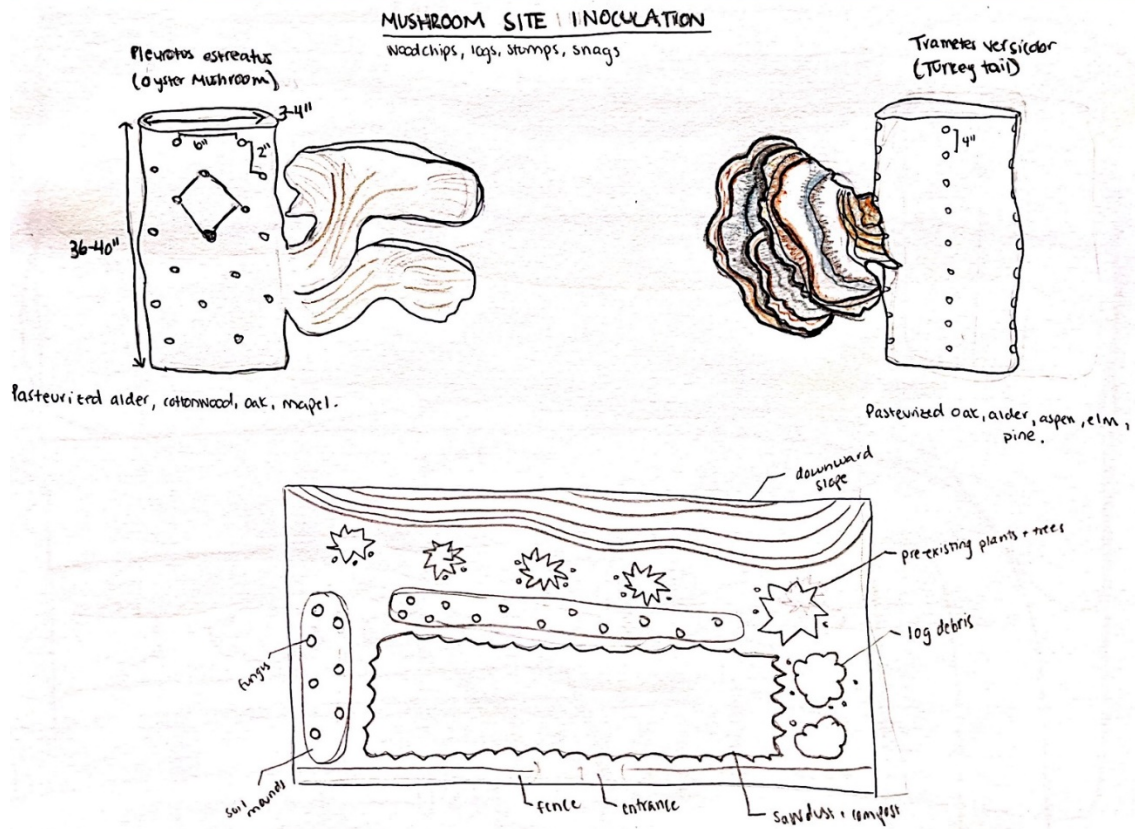 MUSHROOM SITE INOCULATION
Woodchips, logs, stumps, snags
Pleurotus estreatus
(Oyster Mushroom)
3-4"
6"
2"
36-40"
Pasteurized alder, cottonwood, oak, mapel.
Trametes versicolor
(Turkey tail)
4"
Pasteurized oak, alder, aspen, elm,
pine.
downward
slope
pre-existing plants + trees
log debris
fungus
soil
mounds
fence
entrance
sawdust + compost